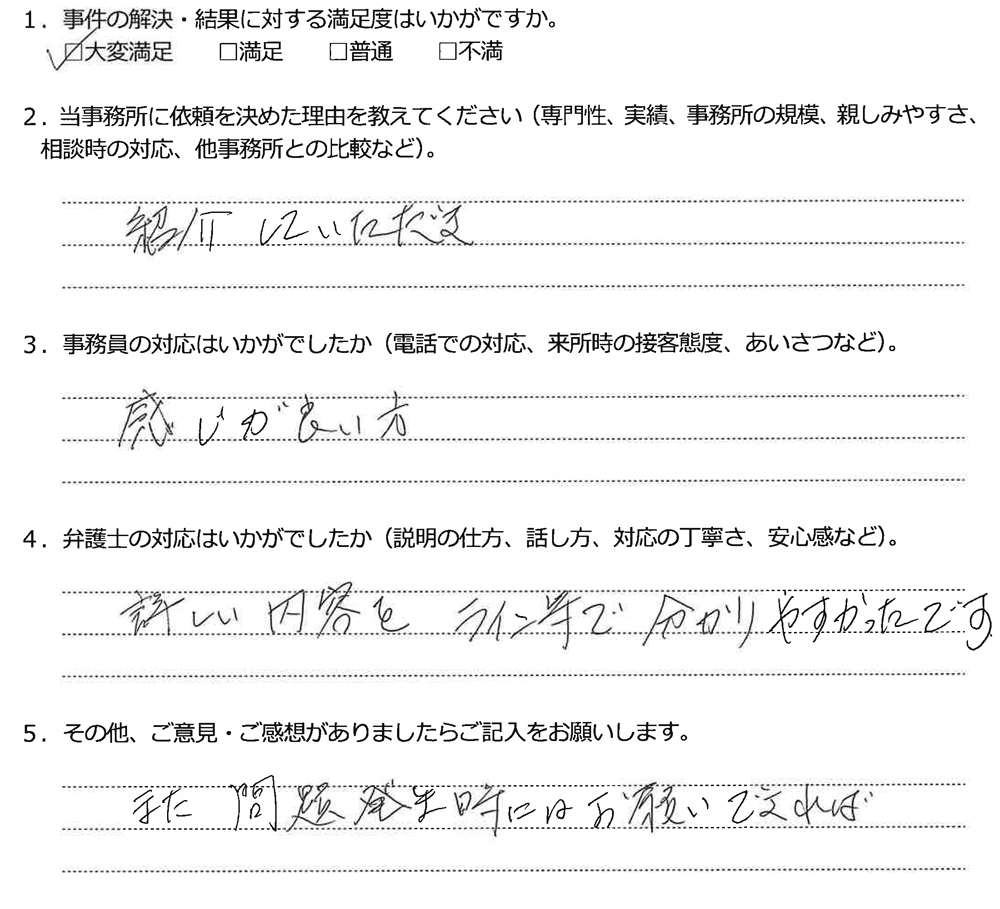 1．事件の解決・結果に対する満足度はいかがですか。
☑大変満足　□満足　□普通　□不満
2．当事務所に依頼を決めた理由を教えてください（専門性、実績、事務所の規模、親しみやすさ、
相談時の対応、他事務所との比較など）。
紹介していただき
3．事務員の対応はいかがでしたか（電話での対応、来所時の接客態度、あいさつなど）。
感じが良い方
4．弁護士の対応はいかがでしたか（説明の仕方、話し方、対応の丁寧さ、安心感など）。
詳しい内容を ライン等で 分かりやすかったです
5．その他、ご意見・ご感想がありましたらご記入をお願いします。
また 問題発生時にはお願いできれば